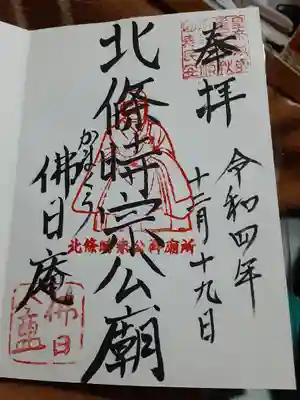 奉拝
令和四年
十二月十九日
北條時宗公廟
北條時宗公御廟所
かまくら
佛日庵
佛日